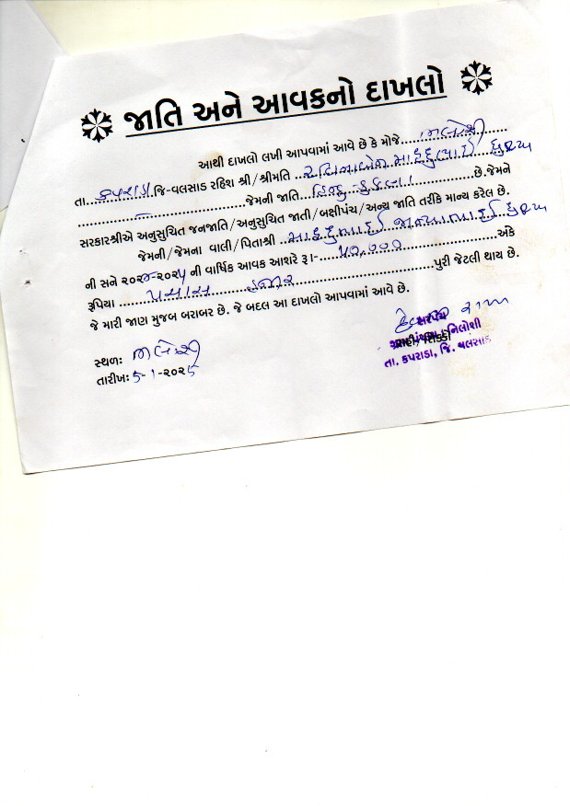 જાતિ અને આવકનો દાખલો
આથી દાખલો લખી આપવામાં આવે છે કે મોજે
તા. કપરાડા જિ-વલસાડ રહિશ શ્રી/શ્રીમતિ
જેમની જાતિ હિન્દુ- છે.જેમને
સરકારશ્રીએ અનુસુચિત જનજાતિ/અનુસુચિત જાતી/બક્ષીપંચ/અન્ય જાતિ તરીકે માન્ય કરેલ છે.
જેમની/જેમના વાલી/પિતાશ્રી
ની સને ૨૦૨૪-૨૦૨૫ ની વાર્ષિક આવક આશરે રૂા- ૫૦,૦૦૦ અંકે
રૂપિયા પચાસ હજાર પુરી જેટલી થાય છે.
જે મારી જાણ મુજબ બરાબર છે. જે બદલ આ દાખલો આપવામાં આવે છે.
સ્થળઃ
તારીખઃ ૫-૧-૨૦૨૫
સરપંચ
સહી/સિક્કો
તા. કપરાડા, જિ. વલસાડ